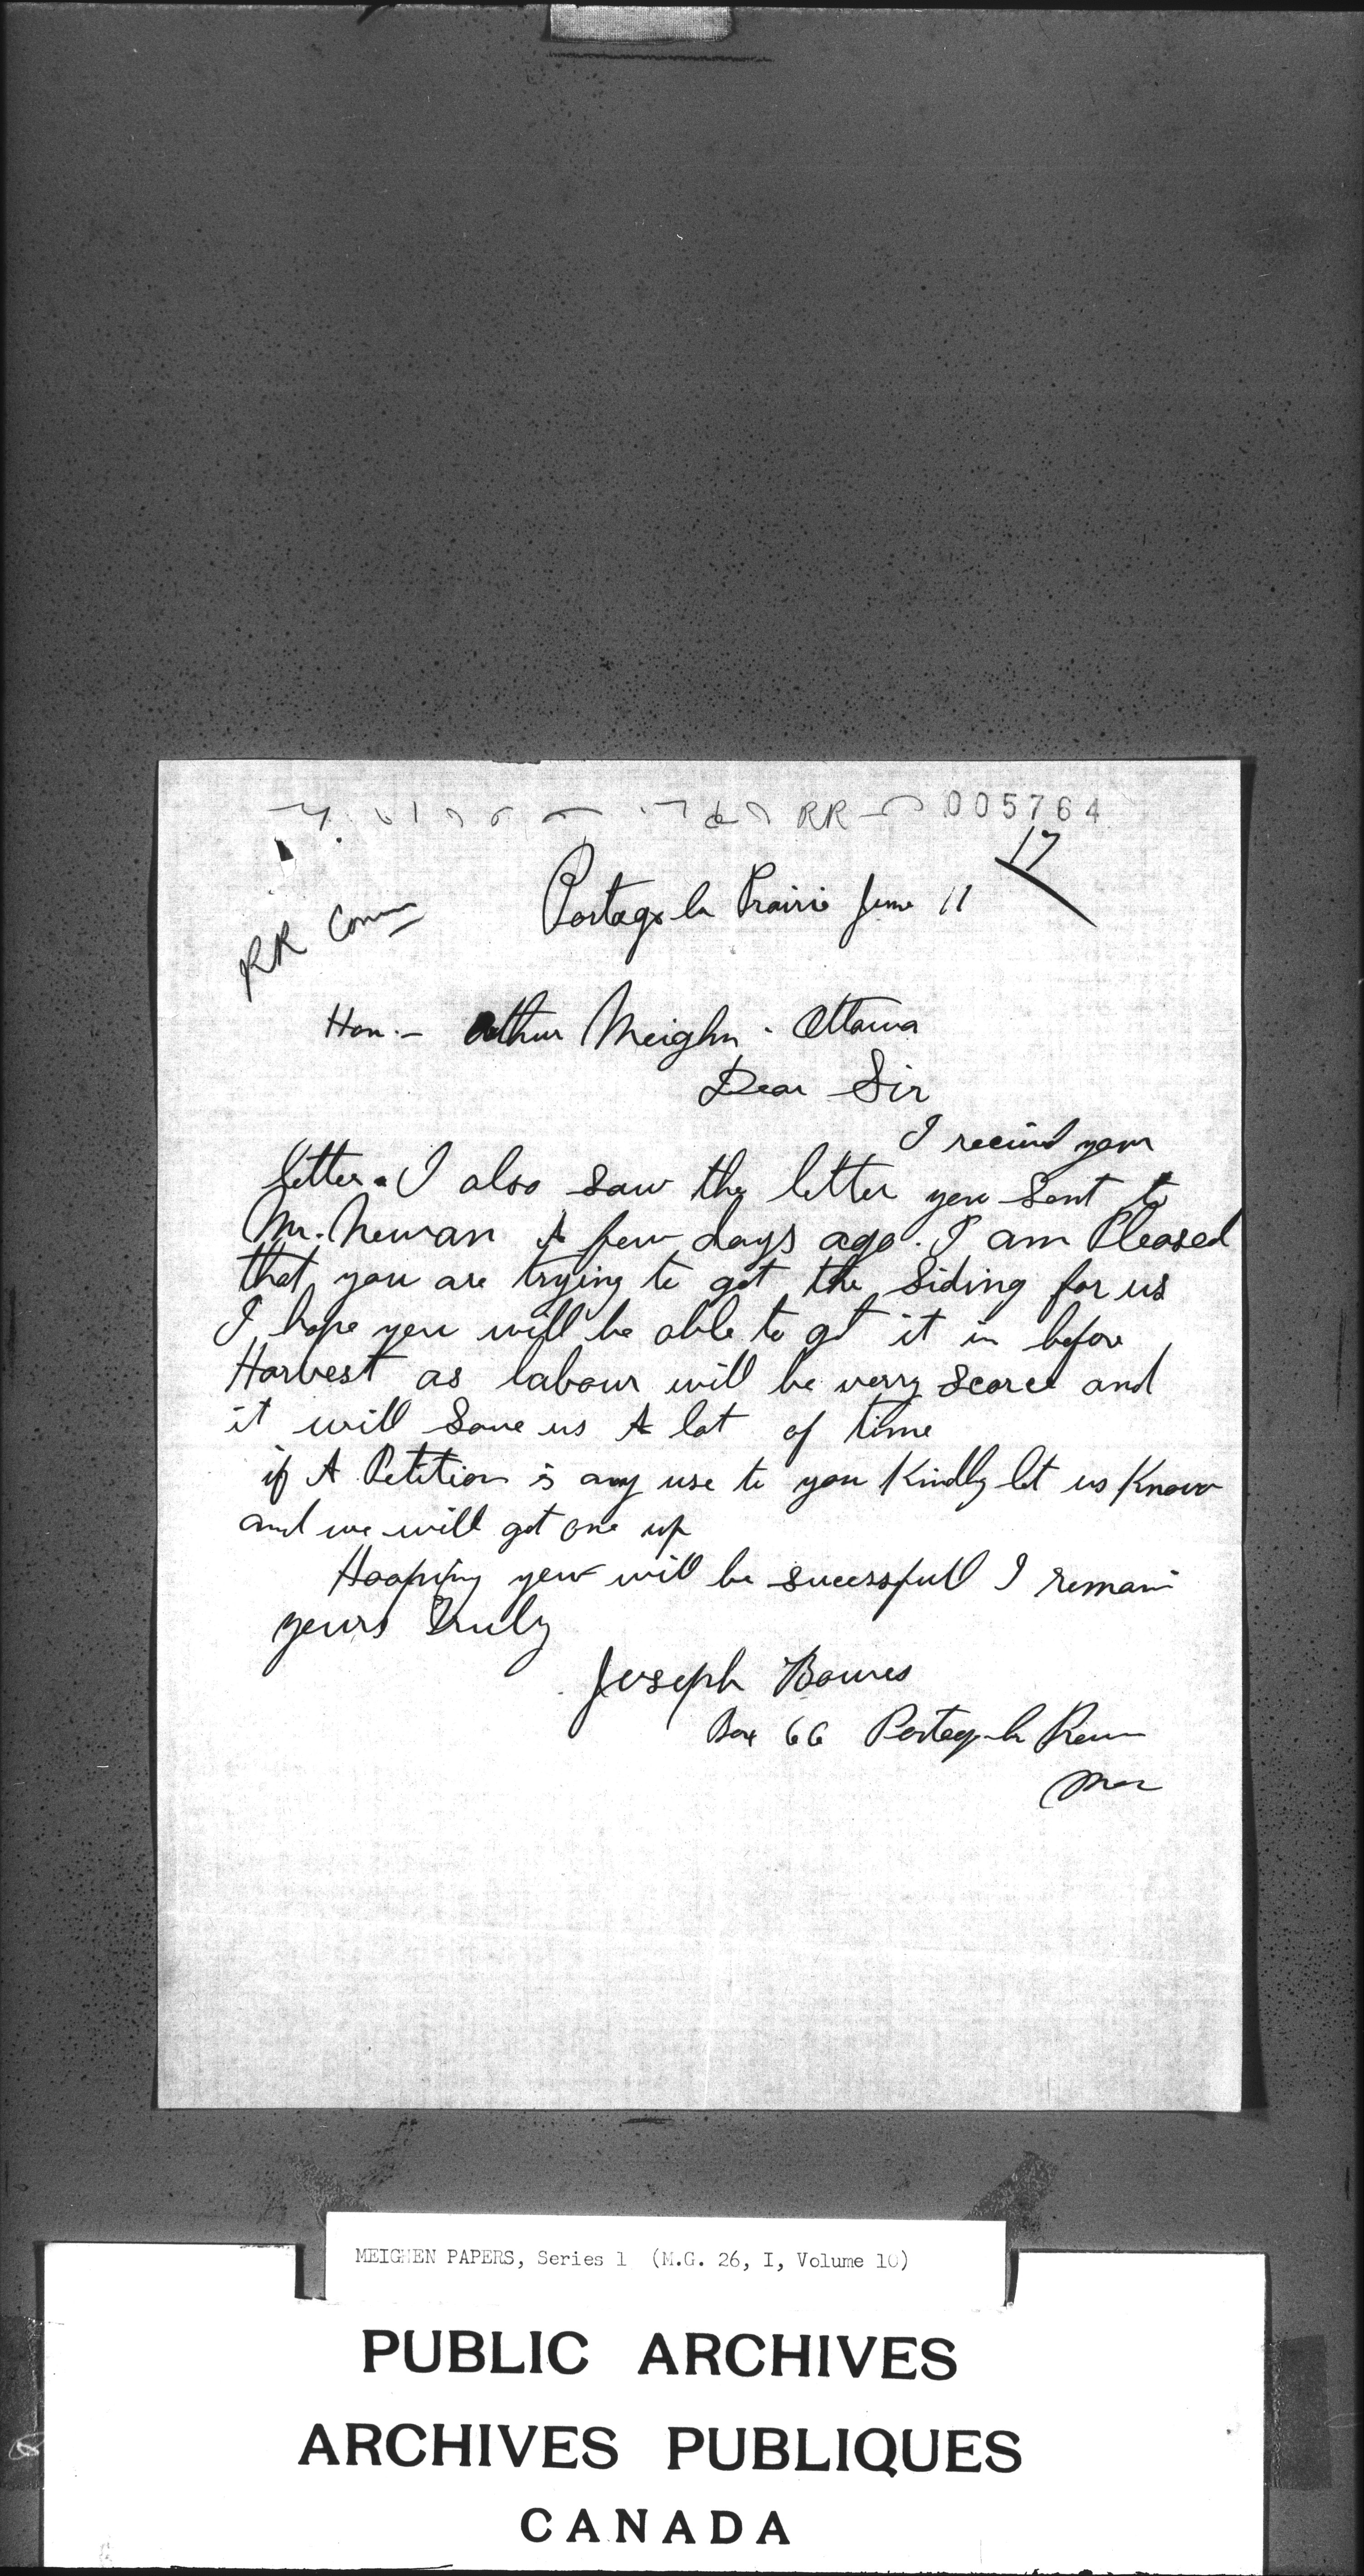 RR 005764
17
RR Comm
Portage la Prairie June 11
Hon.- Arthur Meighn - Ottawa
Dear Sir
I recived your
letter. I also saw the letter you sent to
Mr. Newan A few days ago. I am Pleased
that you are trying to get the Siding for us
I hope you will be able to get it in before
Harvest as labour will be verry Scarce and
it will Save us A lot of time
if A Petition is any use to you Kindly let us Know
and we will get one up
Hooping you will be sucessfull I remain
yours Truly
Joseph Bowes
Box 66 Portage la Prairie
Man
MEIGHEN PAPERS, Series 1 (M.G. 26, I, Volume 10)
PUBLIC ARCHIVES
ARCHIVES PUBLIQUES
CANADA